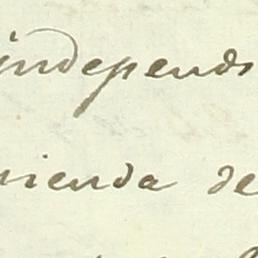 independ
ienda de